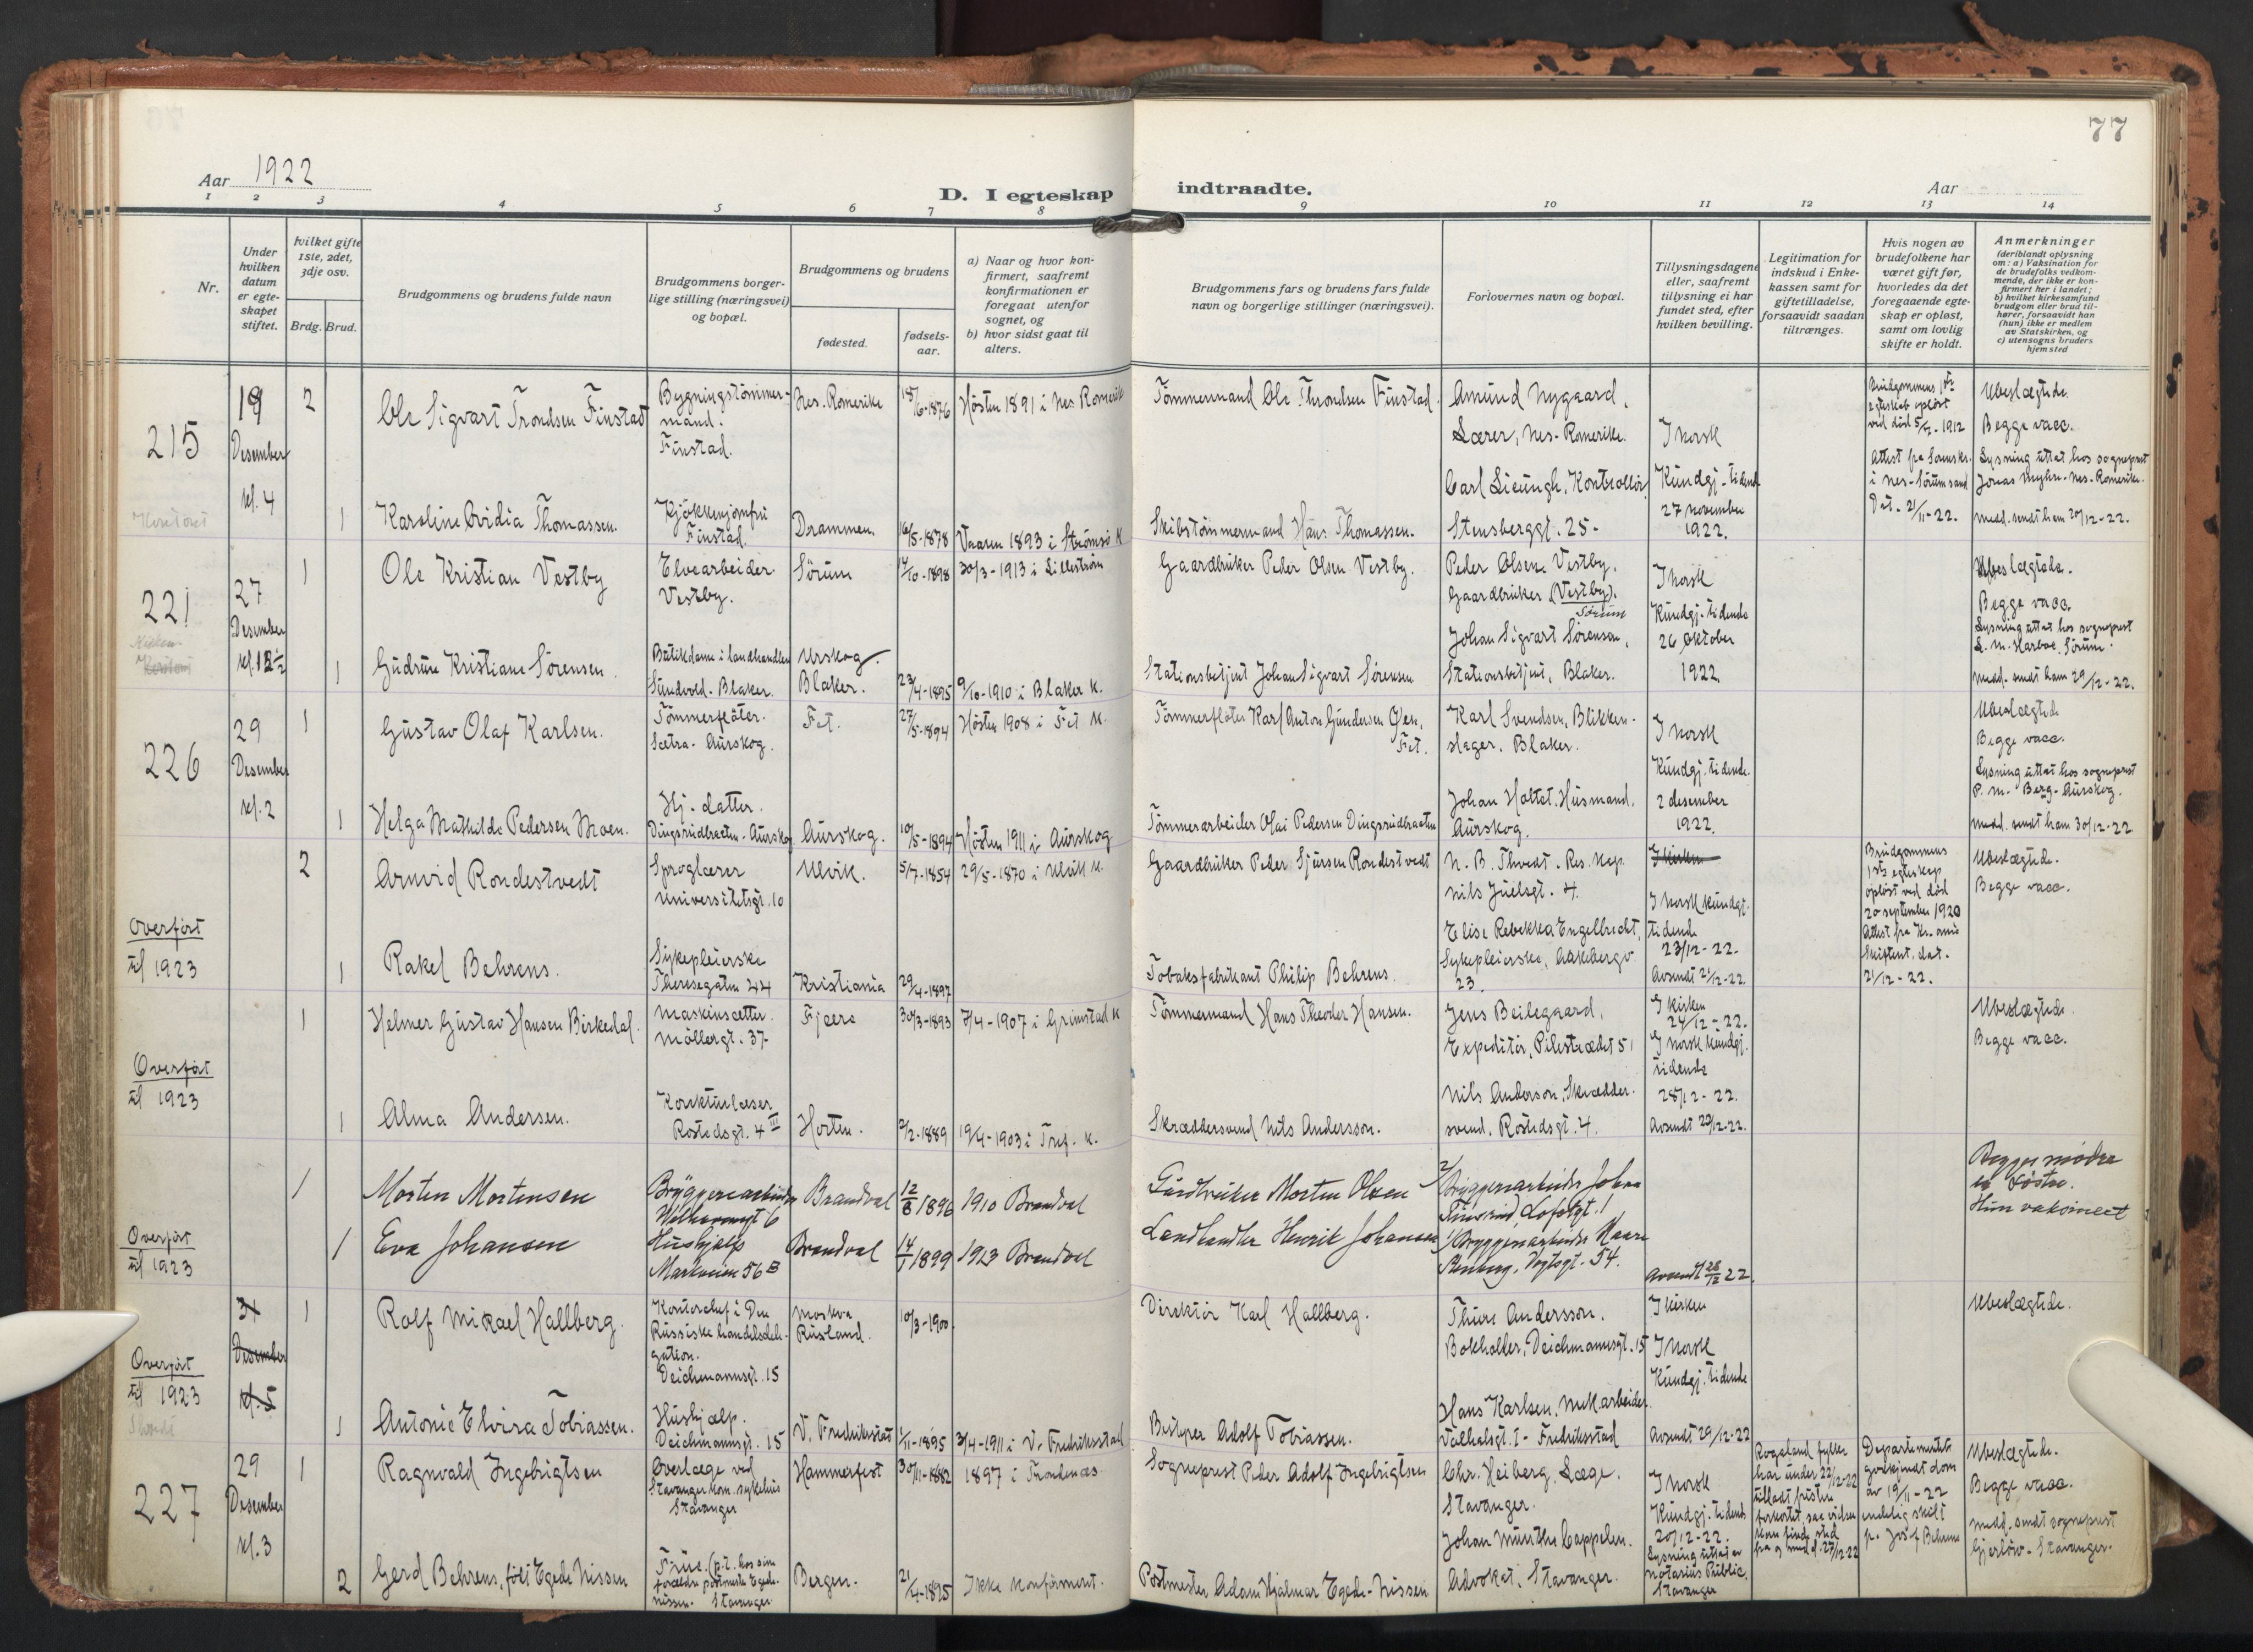 77
Aar 1922
D. I egteskap indtraadte.
Aar
1 2 3 4 5 6 7 8 9 10 11 12 13 14
Nr.
Under
hvilken
datum
er egte-
skapet
stiftet.
hvilket gifte
1ste, 2det,
3dje osv.
Brdg. Brud.
Brudgommens og brudens fulde navn
Brudgommens borger-
lige stilling (næringsvei)
og bopæl.
Brudgommens og brudens
fødested.
fødsels-
aar.
a) Naar og hvor kon-
firmert, saafremt
konfirmationen er
foregaat utenfor
sognet, og
b) hvor sidst gaat til
alters.
Brudgommens fars og brudens fars fulde
navn og borgerlige stillinger (næringsvei).
Forlovernes navn og bopæl.
Tillysningsdagene
eller, saafremt
tillysning ei har
fundet sted, efter
hvilken bevilling.
Legitimation for
indskud i Enke-
kassen samt for
giftetilladelse,
forsaavidt saadan
tiltrænges.
Hvis nogen av
brudefolkene har
været gift før,
hvorledes da det
foregaaende egte-
skap er opløst,
samt om lovlig
skifte er holdt.
Anmerkninger
(deriblandt oplysning
om: a) Vaksination for
de brudefolks vedkom-
mende, der ikke er kon-
firmert her i landet;
b) hvilket kirkesamfund
brudgom eller brud til-
hører, forsaavidt han
(hun) ikke er medlem
av Statskirken, og
c) utensogns bruders
hjemsted
215
19
Desember
kl. 4
Kontoret
2
Ole Sigvart Trondsen Finstad
Bygningstømmer-
mand.
Finstad.
Nes. Romerike
18/6-1876
Høsten 1891 i Nes Romerik
Tømmermand Ole Throndsen Finstad.
Amund Nygaard,
Lærer, Nes-Romerike.
Carl Lieungh, Kontrollør,
Stensberggt. 25-
I Norsk
Kundgj-tidend
27 november
1922.
Brudgommens 1ste
egteskab opløst
ved død 5/5-1912
Attest fra Sorenskr.
i Nes-Sørum sand
Dat. 21/11-22.
Ubeslægtede.
Begge vacc.
Lysning uttat hos sogneprest
Jonas Myhre-Nes-Romerike.
medd. sendt ham 20/12-22.
1
Karoline Ovidia Thomassen.
Kjøkkenjomfru
Finstad.
Drammen.
16/5-1878
Vaaren 1893 i Strømsø K
Skibstømmermand Hans Thomassen.
221
27
Desember
kl. 12 1/2
1
Ole Kristian Vestby
Elvearbeider
Vestby.
Sørum
14/10-1898
30/3-1913 i Lillestrøm
Gaardbruker Peder Olsen Vestby.
Peder Olsen Vestby.
Gaardbruker (Vestby).
Sørum
Johan Sigvart Sørensen,
Stationsbetjent, Blaker.
I Norsk
Kundgj.tidende
26 oktober
1922
Ubeslægtede.
Begge vacc.
Lysning uttat hos sogneprest
L. M. Harboe. Sørum.
Medd. sendt ham 29/12-22.
1
Gudrun Kristiane Sørensen
Butikdame i landhandlen
Sundvold-Blaker.
Urskog.
Blaker.
23/4-1895
9/10-1910 i Blaker K.
Stationsbetjent Johan Sigvart Sørensen
226
29
Desember
kl. 2
1
Gustav Olaf Karlsen.
Tømmerfløter.
Sætra-Aurskog.
Fet.
27/5-1894
Høsten 1908 i Fet K.
Tømmerfløter Karl Anton Gundersen Øien,
Fet.
Karl Svendsen, Blikken-
slager. Blaker.
Johan Holtet. Husmand,
Aurskog.
I Norsk
Kundgj.tidende.
2 desember
1922.
Ubeslægtede
Begge vacc.
Lysning uttat hos sogneprest
P. M. Berg-Aurskog.
medd. sendt ham 30/12-22
1
Helga Mathilde Pedersen Moen.
Hj. datter.
Dingsrudbraaten-Aurskog
Aurskog.
10/5-1894
Høsten 1911 i Aurskog
Tømmerarbeider Olai Pedersen Dingsrudbraaten
Overført
til 1923
2
Arnvid Rondestvedt
Sproglærer
Universitetsgt. 10
Ulvik.
5/7-1854
29/5-1870 i Ulvik K.
Gaardbruker Peder Sjursen Rondestvedt
N. B. Thvedt. Res. kap.
Nils Juelsgt. 4.
Elise Rebekka Engelbrecht,
Sykepleierske, Aakebergv
23.
I kirken
I Norsk kundgt.
tidende
23/12-22-
Avsendt 21/12-22.
Brudgommens
1ste egteskap
opløst ved død
20 september 1920
Attest fra Kr.ania
Skifteret, dat.
21/12-22.
Ubeslægtede.
Begge vacc.
1
Rakel Behrens.
Sykepleierske
Theresegaten 44
Kristiania
29/4-1897
Tobaksfabrikant Philip Behrens.
Overført
til 1923
1
Helmer Gustav Hansen Birkedal.
Maskinsætter.
Møllergt. 37-
Fjære
30/3-1893
7/4-1907 i Grimstad K
Tømmermand Hans Theodor Hansen.
Jens Beilegaard,
Expeditør, Pilestrædet 51
Nils Anderson, Skrædder-
svend, Rostedsgt. 4.
I kirken
24/12-22.
I Norsk kundgj.
tidende
28/12-22.
Avsendt 22/12-22.
Ubeslægtede.
Begge vacc.
1
Alma Andersen.
Korrekturleser
Rostedsgt. 4 III
Horten.
2/2-1889
19/4-1903 i Tref. K.
Skræddersvend Nils Andersson.
Overført
til 1923
1
Morten Mortensen
Bryggeriarbeider
Brandval
12/8 1896
1910 Brandval
Gårdbruker Morten Olsen
2/ Bryggeriarbeider Johan
Lofotgt. 1
1/ Bryggeriarbeider Kaare
Vogtsgt. 54.
Avsendt 28/12 22.
Begges mødre
er søstre.
Hun vaksineret
1
Eva Johansen
Hushjelp
Markveien 56 B
Brandval
14/1 1899
1913 Brandval
Landhandler Henrik Johansen
Overført
til 1923
31
Desember
kl. 5
1
Rolf Mikael Hallberg.
Kontorchef i Den
Russiske handelsdele-
gation.
Deichmannsgt. 15
Moskva
Rusland.
10/3-1900
Direktør Karl Hallberg.
Thure Andersson.
Bokholder, Deichmannsgt. 15
Hans Karlsen, Mek.arbeider
Valhalsgt. 1-Fredriksstad
I kirken
I Norsk
Kundgj.tidende
Avsendt 29/12-22
Ubeslægtede.
1
Antonie Elvira Tobiassen.
Hushjælp.
Deichmannsgt. 15
V. Fredrikstad
1/11-1895
3/4-1911 i V. Fredriksstad
Bestyrer Adolf Tobiassen.
227
29
Desember
kl. 3
1
Ragnvald Ingebrigtsen
Overlæge ved
Stavanger kom. sykehus
Stavanger
Hammerfest
30/11-1882
1897 i Trondenes
Sogneprest Peder Adolf Ingebrigtsen
Chr. Heiberg. Læge.
Stavanger.
Johan Munthe Cappelen.
Advokat, Stavanger.
I Norsk
Kundgj.tidend
20/12-22.
Lysning uttat av
notarius Public,
Stavanger
Rogaland fylke
har under 22/12-22
tilladt fristen
forkortet, saa vielsen
kan finde sted
fra og med d. 27/12-22
Departementets
godkjendt dom
av 19/11-22
endelig skilt
fr. Josef Behrens
Ubeslægtede.
Begge vacc.
medd. sendt sogneprest
Gjerløw-Stavanger.
2
Gerd Behrens, født Egede Nissen
Frue. (p.t. hos sin
forældre postmester Egede-
Nissen. Stavanger
Bergen.
21/4-1895
Ikke konfirmeret.
Postmester Adam Hjalmar Egede-Nissen